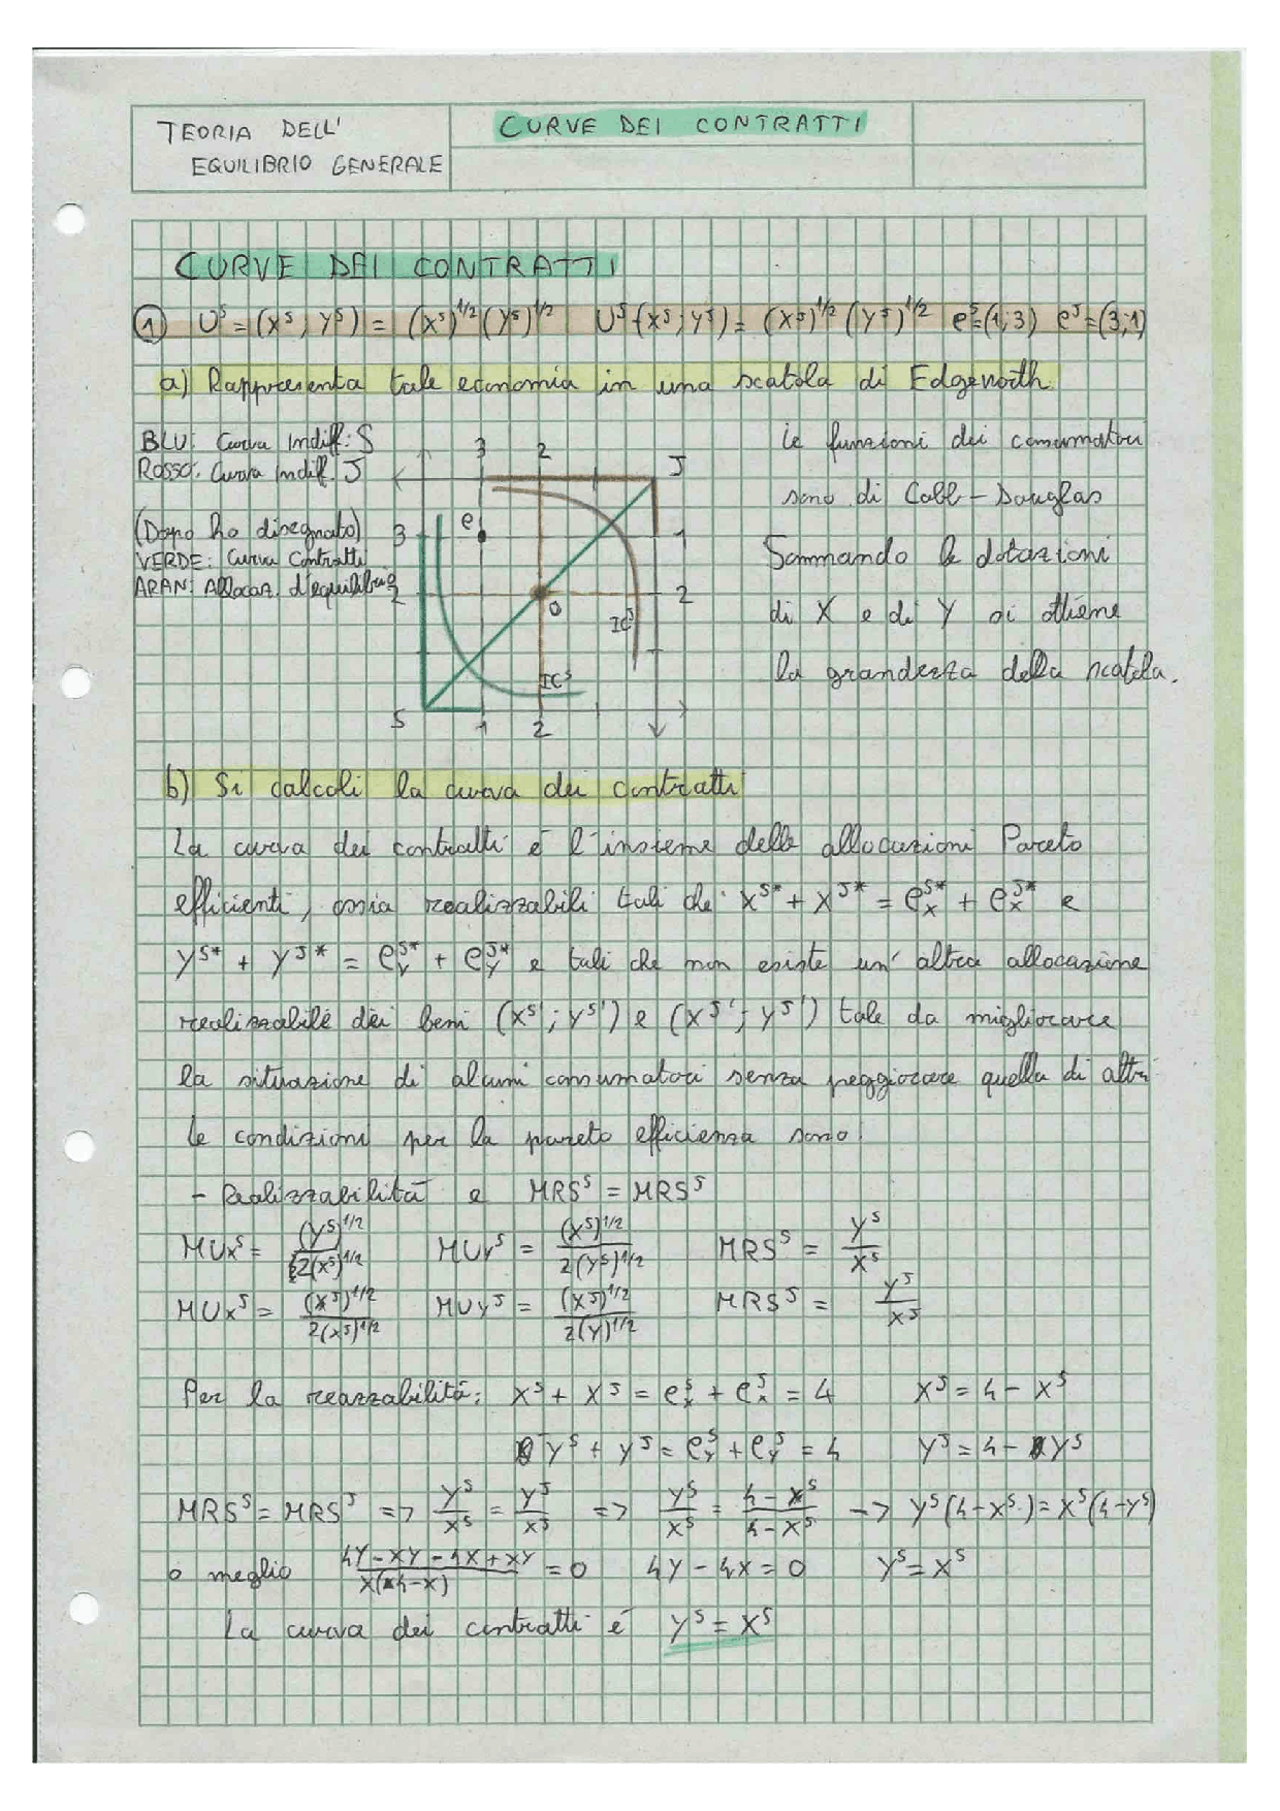 TEORIA DELL'
EQUILIBRIO GENERALE
CURVE DEI CONTRATTI
CURVE DEI CONTRATTI
① U^S = (X^S ; Y^S) = (X^S)^1/2 (Y^S)^1/2 U^J (X^J ; Y^J) = (X^J)^1/2 (Y^J)^1/2 e^S=(1;3) e^J=(3;1)
a) Rappresenta tale economia in una scatola di Edgeworth
BLU: Curva Indiff: S
ROSSO: Curva Indiff. J
(Dopo ho disegnato)
VERDE: Curva Contratti
ARAN: Allocaz. d'equilibrio
3 2 J
e
3 1
2 2
O
IC^J
IC^S
S 1 2
Le funzioni dei consumatori
sono di Cobb-Douglas
Sommando le dotazioni
di X e di Y si ottiene
la grandezza della scatola.
b) Si calcoli la curva dei contratti
La curva dei contratti è l'insieme delle allocazioni Pareto
efficienti, ossia realizzabili tali che: X^S* + X^J* = e_x^S* + e_x^J* e
Y^S* + Y^J* = e_Y^S* + e_Y^J* e tali che non esiste un'altra allocazione
realizzabile dei beni (X^S' ; Y^S') e (X^J' ; Y^J') tale da migliorare
la situazione di alcuni consumatori senza peggiorare quella di altri
Le condizioni per la pareto efficienza sono:
- Realizzabilità e MRS^S = MRS^J
MUx^S = (Y^S)^1/2 / 2(X^S)^1/2 MUY^S = (X^S)^1/2 / 2(Y^S)^1/2 MRS^S = Y^S / X^S
MUx^J = (X^J)^1/2 / 2(X^J)^1/2 MUY^J = (X^J)^1/2 / 2(Y)^1/2 MRS^J = Y^J / X^J
Per la reazzabilità: X^S + X^J = e_x^S + e_x^J = 4 X^J = 4 - X^S
Y^S + Y^J = e_Y^S + e_Y^J = 4 Y^J = 4 - Y^S
MRS^S = MRS^J => Y^S / X^S = Y^J / X^J => Y^S / X^S = 4 - X^S / 4 - X^S -> Y^S(4-X^S) = X^S(4-Y^S)
o meglio 4Y - XY - 4X + XY / X(4-X) = 0 4Y - 4X = 0 Y^S = X^S
La curva dei contratti è Y^S = X^S